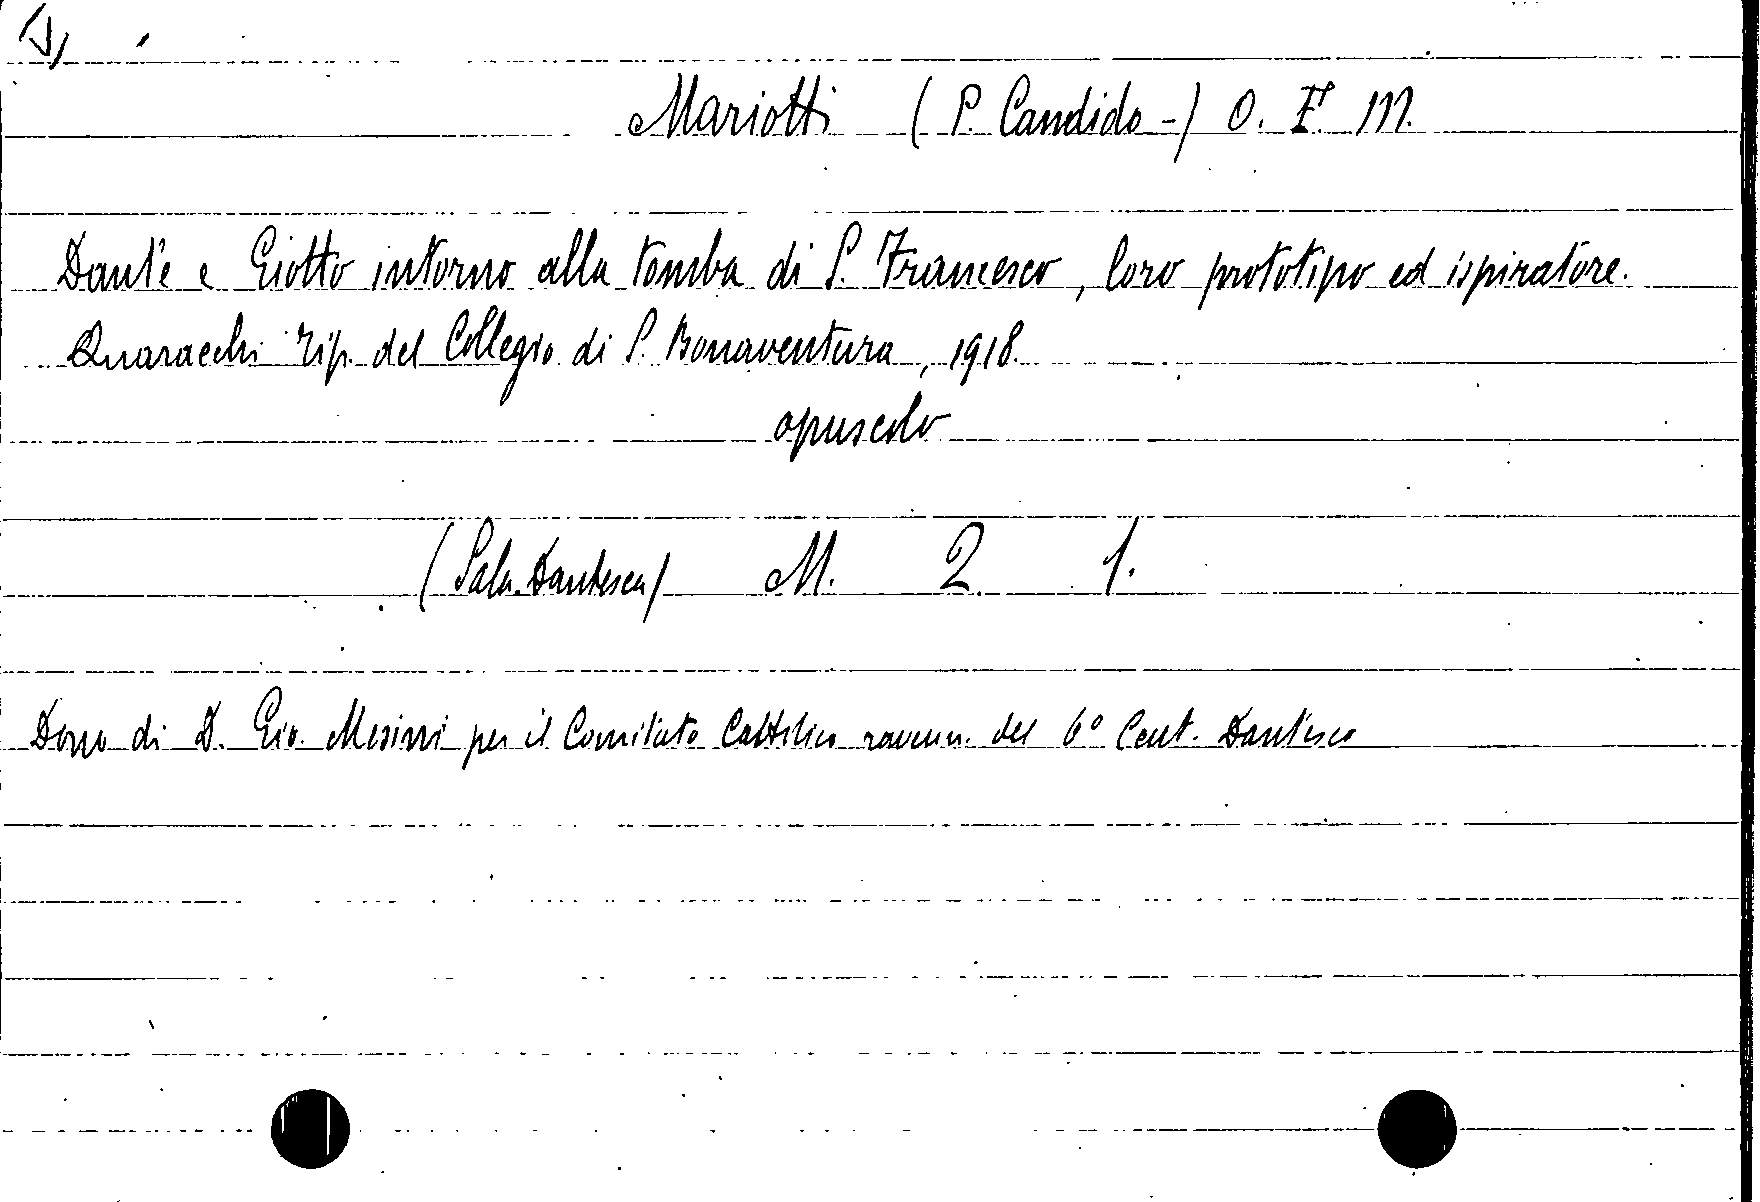 Mariotti (P. Candido-) O. F. M.
Dante e Giotto intorno alla tomba di S. Francesco, loro prototipo ed ispiratore.
Quaracchi Tip. del Collegio di S. Bonaventura, 1918.
opuscolo
(Sala Dantesca) M. 2 1.
Dono di D. Gio. Mesini per il Comitato Cattolico ravenn. del 6° Cent. Dantesco